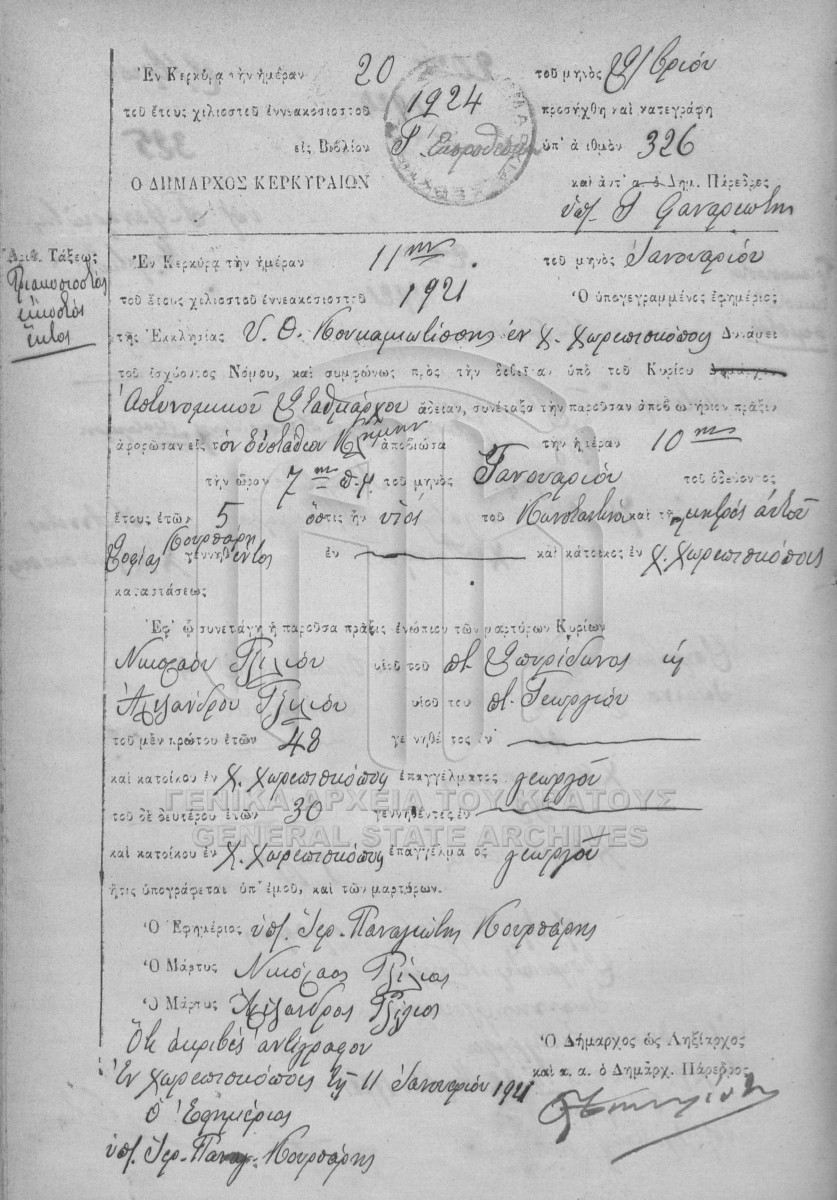 Ἐν Κερκύρᾳ τὴν ἡμέραν 20 τοῦ μηνὸς 9/βρίου
τοῦ ἔτους χιλιοστοῦ ἐννεακοσιοστοῦ 1924 προσήχθη καὶ κατεγράφη
εἰς Βιβλίον Γ΄ ὑπ' ἀριθμὸν 326
Ο ΔΗΜΑΡΧΟΣ ΚΕΡΚΥΡΑΙΩΝ καὶ ἀντ' α. ὁ Δημ. Πάρεδρος
ὑπ. Γ
Ἀριθ. Τάξεως
Τριακοσιοστὸς
εἰκοστὸς
ἕκτος
Ἐν Κερκύρᾳ τὴν ἡμέραν 11ην τοῦ μηνὸς Ἰανουαρίου
τοῦ ἔτους χιλιοστοῦ ἐννεακοσιοστοῦ 1921 Ὁ ὑπογεγραμμένος ἐφημέριος
τῆς Ἐκκλησίας Υ. Θ. ἐν χ. Χωρεπισκόποις Δυνάμει
τοῦ ἰσχύοντος Νόμου, καὶ συμφώνως πρὸς τὴν δοθεῖσαν ὑπὸ τοῦ Κυρίου Δημάρχου
Ἀστυνομικοῦ Σταθμάρχου ἄδειαν, συνέταξα τὴν παροῦσαν ἀποβιωτήριον πρᾶξιν
ἀφορῶσαν εἰς τὸν Εὐστάθιον ἀποβιώσα τὴν ἡμέραν 10ην
τὴν ὥραν 7ην π.μ. τοῦ μηνὸς Ἰανουαρίου τοῦ ὁδεύοντος
ἔτους ἐτῶν 5 ὅστις ἦν υἱὸς τοῦ Κωνσταντίνου καὶ τῆς μητρὸς αὐτοῦ
Σοφίας Κουρσάρη γεννηθέντος ἐν καὶ κάτοικος ἐν χ. Χωρεπισκόποις
καταστάσεως
Ἐφ' ᾧ συνετάγη ἡ παροῦσα πρᾶξις ἐνώπιον τῶν μαρτύρων Κυρίων
Νικολάου Τζίλιου υἱοῦ τοῦ ποτ. Σπυρίδωνος κ
Ἀλεξάνδρου Τζίλιου υἱοῦ του ποτ. Γεωργίου
τοῦ μὲν πρώτου ἐτῶν 48 γεννηθέντος ἐν
καὶ κατοίκου ἐν χ. Χωρεπισκόποις ἐπαγγέλματος γεωργοῦ
ΓΕΝΙΚΑ ΑΡΧΕΙΑ ΤΟΥ ΚΡΑΤΟΥΣ
τοῦ δὲ δευτέρου ἐτῶν 30 γεννηθέντος ἐν
GENERAL STATE ARCHIVES
καὶ κατοίκου ἐν χ. Χωρεπισκόποις ἐπαγγέλματος γεωργοῦ
ἥτις ὑπογράφεται ὑπ' ἐμοῦ, καὶ τῶν μαρτύρων.
Ὁ Ἐφημέριος ὑπ. Ἱερ. Παναγιώτης Κουρσάρης
Ὁ Μάρτυς Νικόλαος Τζίλιος
Ὁ Μάρτυς Ἀλέξανδρος Τζίλιος
Ὅτι ἀκριβὲς ἀντίγραφον
Ἐν Χωρεπισκόποις τῇ 11 Ἰανουαρίου 1921
Ὁ Ἐφημέριος
ὑπ. Ἱερ. Παναγ. Κουρσάρης
Ὁ Δήμαρχος ὡς Ληξίαρχος
καὶ κ. α. ὁ Δημαρχ. Πάρεδρος